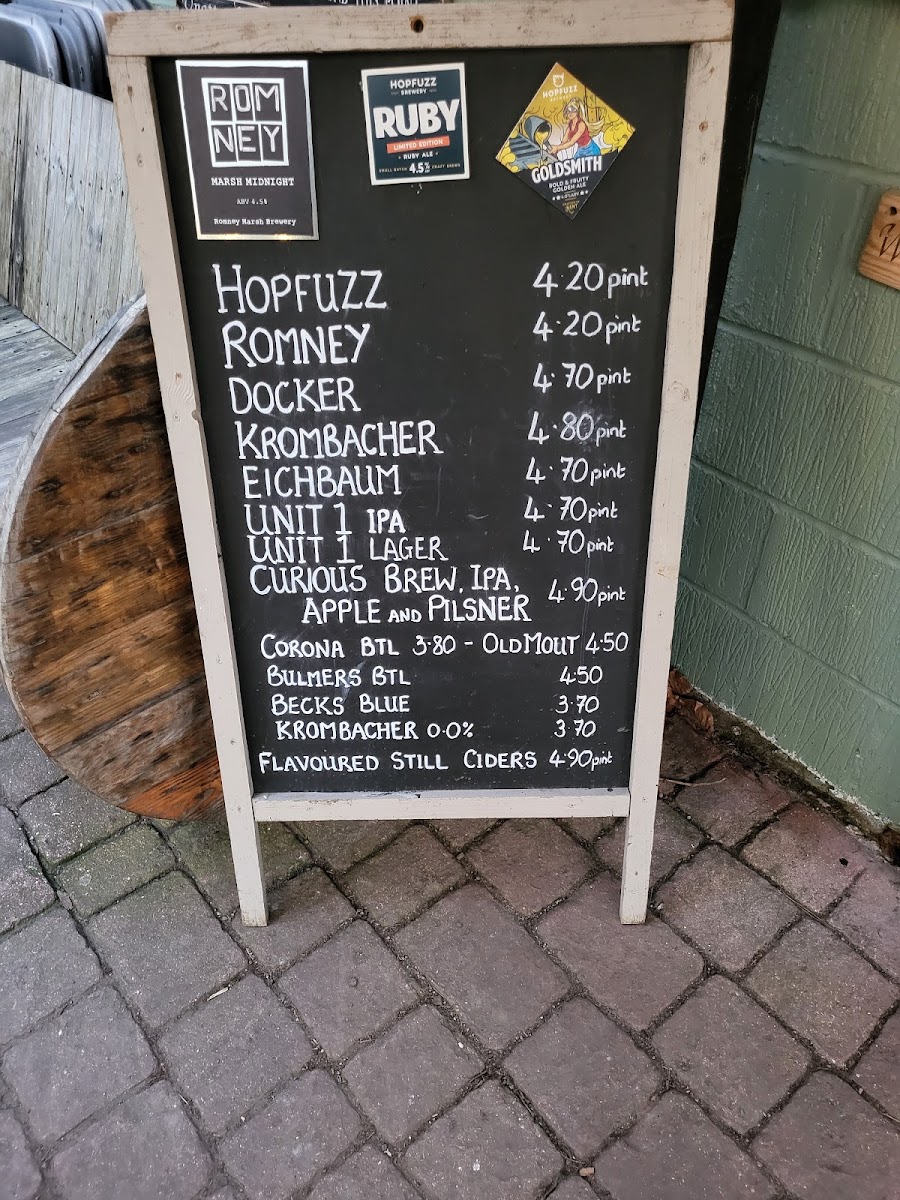 ROM
NEY
MARSH MIDNIGHT
ABV 4.5%
Romney Marsh Brewery
HOPFUZZ
BREWERY
RUBY
LIMITED EDITION
RUBY ALE
SMALL BATCH 4.5% CRAFT BREWED
HOPFUZZ
GOLDSMITH
BOLD & FRUITY
GOLDEN ALE
HOPFUZZ 4.20 pint
ROMNEY 4.20 pint
DOCKER 4.70 pint
KROMBACHER 4.80 pint
EICHBAUM 4.70 pint
UNIT 1 IPA 4.70 pint
UNIT 1 LAGER 4.70 pint
CURIOUS BREW, IPA,
APPLE AND PILSNER 4.90 pint
CORONA BTL 3.80 - OLD MOUT 4.50
BULMERS BTL 4.50
BECKS BLUE 3.70
KROMBACHER 0.0% 3.70
FLAVOURED STILL CIDERS 4.90 pint